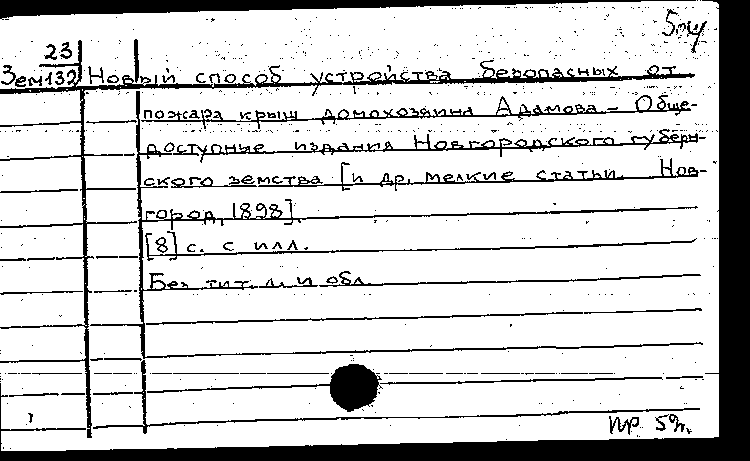 23
Зем132 Новый способ устройства безопасных от
пожара крыш домохозяина Адамова - Обще-
доступные издания Новгородского губерн-
ского земства [и др. мелкие статьи. Нов-
город, 1898].
[8] с. с илл.
Без тит. л. и обл.
пр. 59г.